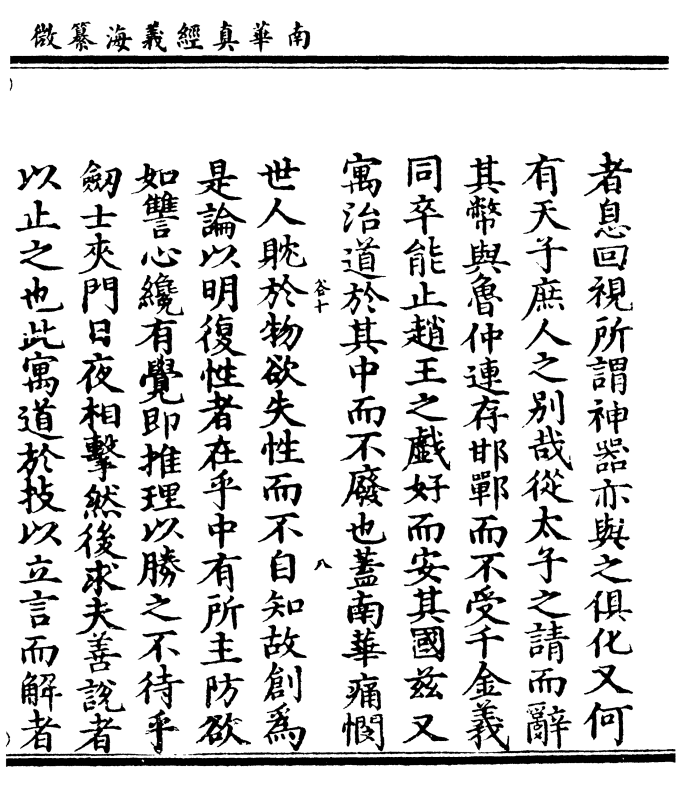 南華真經義海纂微
者息回視所謂神器亦與之俱化又何
有天子庶人之别哉從太子之請而辭
其幣與魯仲連存邯鄲而不受千金義
同卒能止趙王之戲好而安其國兹又
寓治道於其中而不廢也蓋南華痛憫
卷十
八
世人耽於物欲失性而不自知故創為
是論以明復性者在乎中有所主防欲
如讐心纔有覺即推理以勝之不待乎
劒士夾門日夜相擊然後求夫善說者
以止之也此寓道於技以立言而解者